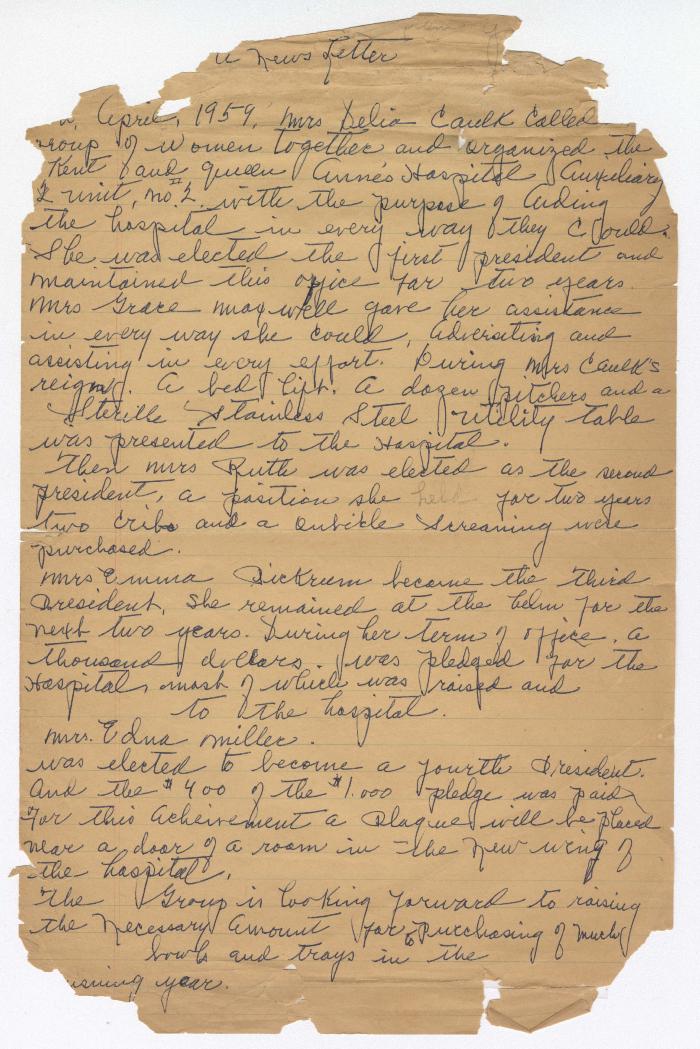 News Letter
April, 1959, Mrs Delia Caulk Called
group of women together and organized the
Kent and queen Anne's Hospital Auxiliary
unit, no. 2. with the purpose of Aiding
the hospital in every way they Could.
She was elected the first president and
maintained this office for two years.
Mrs Grace Maxwell gave her assistance
in every way she could, adversiting and
assisting in every effort. During Mrs Caulk's
reign. A bed lift. A dozen pitchers and a
Sterille Stainless Steel Utility table
was presented to the Hospital.
Then Mrs Ruth was elected as the second
president, a position she held for two years
two cribs and a Cubikle Screaning were
purchased.
Mrs Emma Dickrum become the third
President, She remained at the helm for the
next two years. During her term of office, a
thousand dollars. was pledged for the
Hospital, most of which was raised and
to the hospital.
Mrs. Edna Miller.
was elected to become a fourth President.
And the $400 of the $1.000 pledge was paid
For this Acheivement a Plaque will be placed
near a door of a room in the New wing of
the hospital.
The Group is looking forward to raising
the Necessary Amount for purchasing of
bowls and trays in the
year.